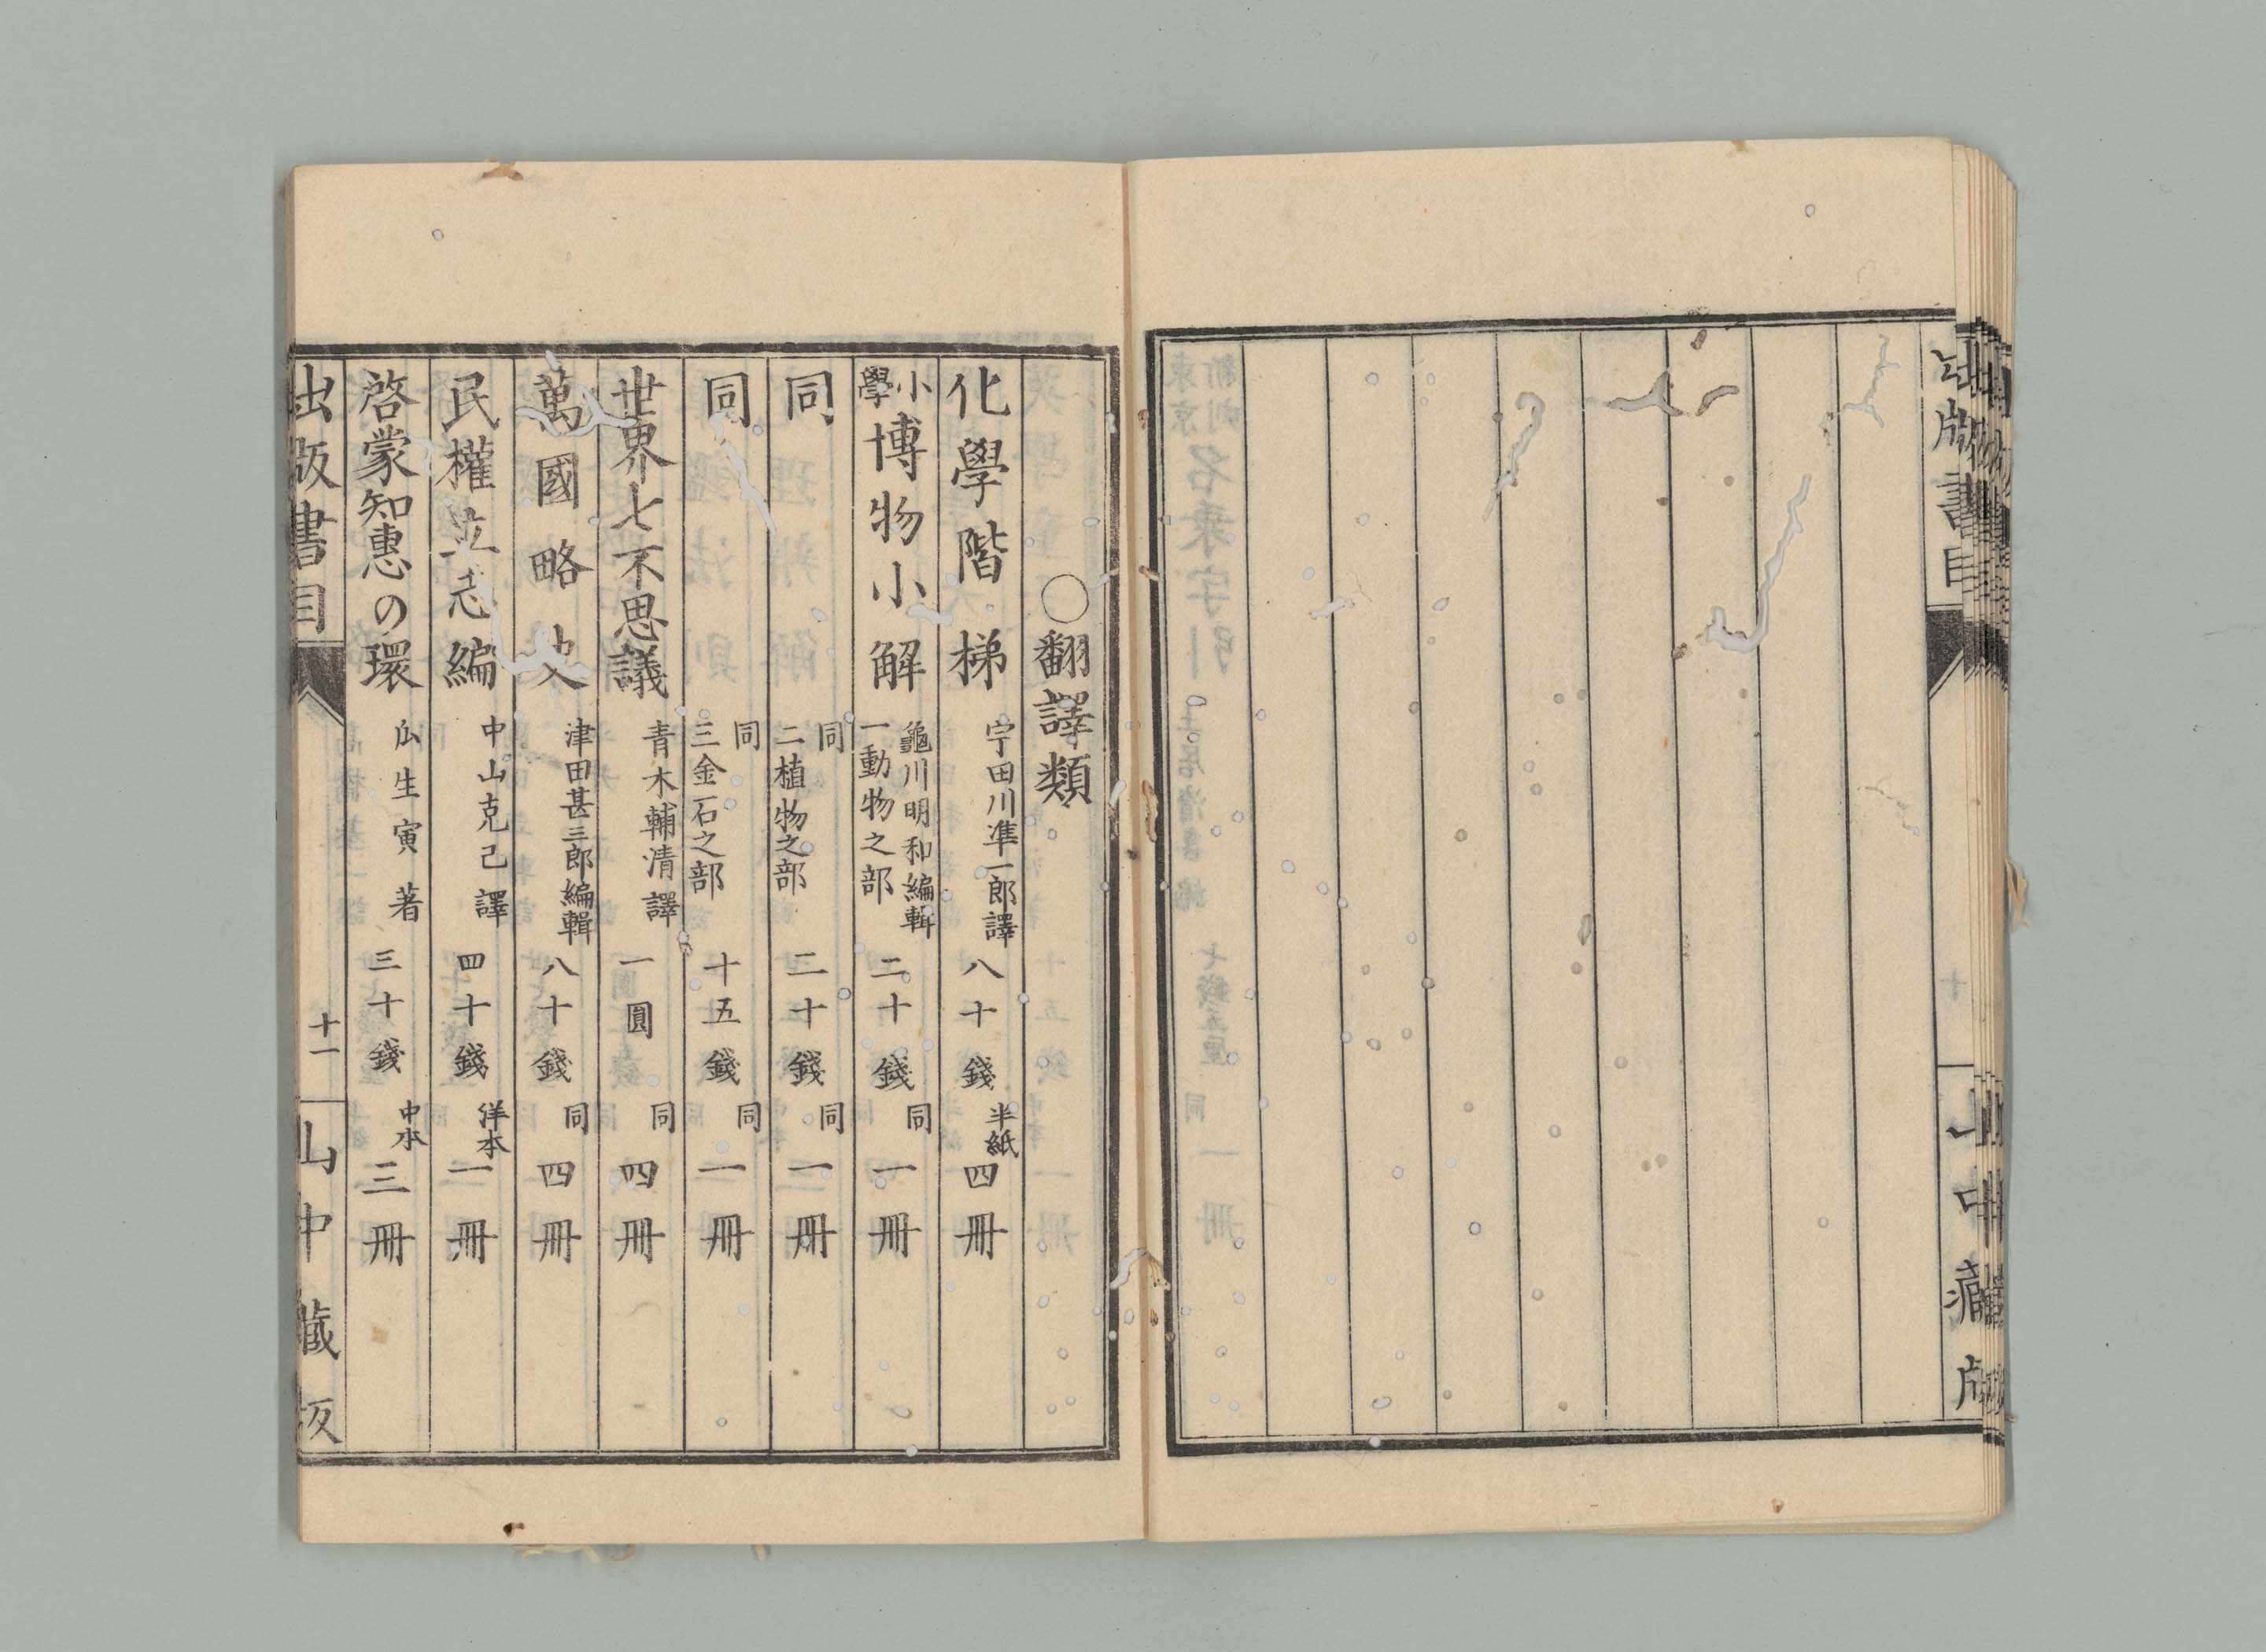 出版書目
山中藏版
○翻譯類
化學階梯 宇田川準一郎譯 八十錢 半紙 四冊
小學博物小解 龜川明和編輯 一動物之部 二十錢 同 一冊
同 同 二植物之部 二十錢 同 一冊
同 同 三金石之部 十五錢 同 一冊
世界七不思議 青木輔清譯 一圓 同 四冊
萬國略史 津田甚三郎編輯 八十錢 同 四冊
民權立志編 中山克己譯 四十錢 洋本 一冊
啓蒙知惠の環 瓜生寅著 三十錢 中本 三冊
出版書目
十一
山中藏版